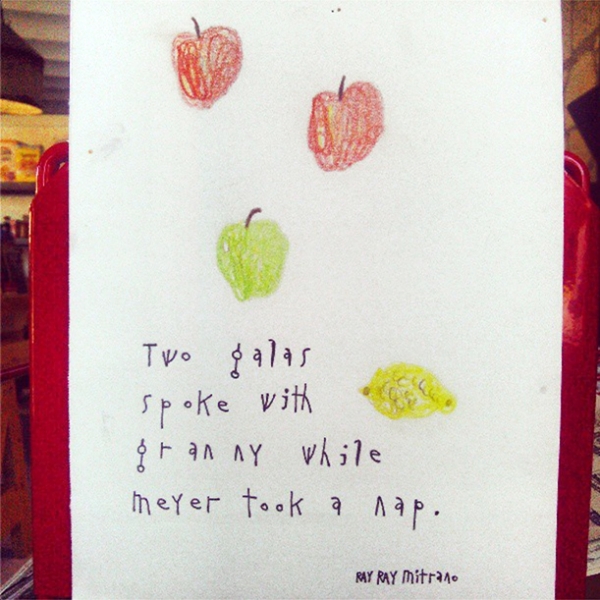 Two galas
spoke with
granny while
meyer took a nap.
RAY RAY mitrano